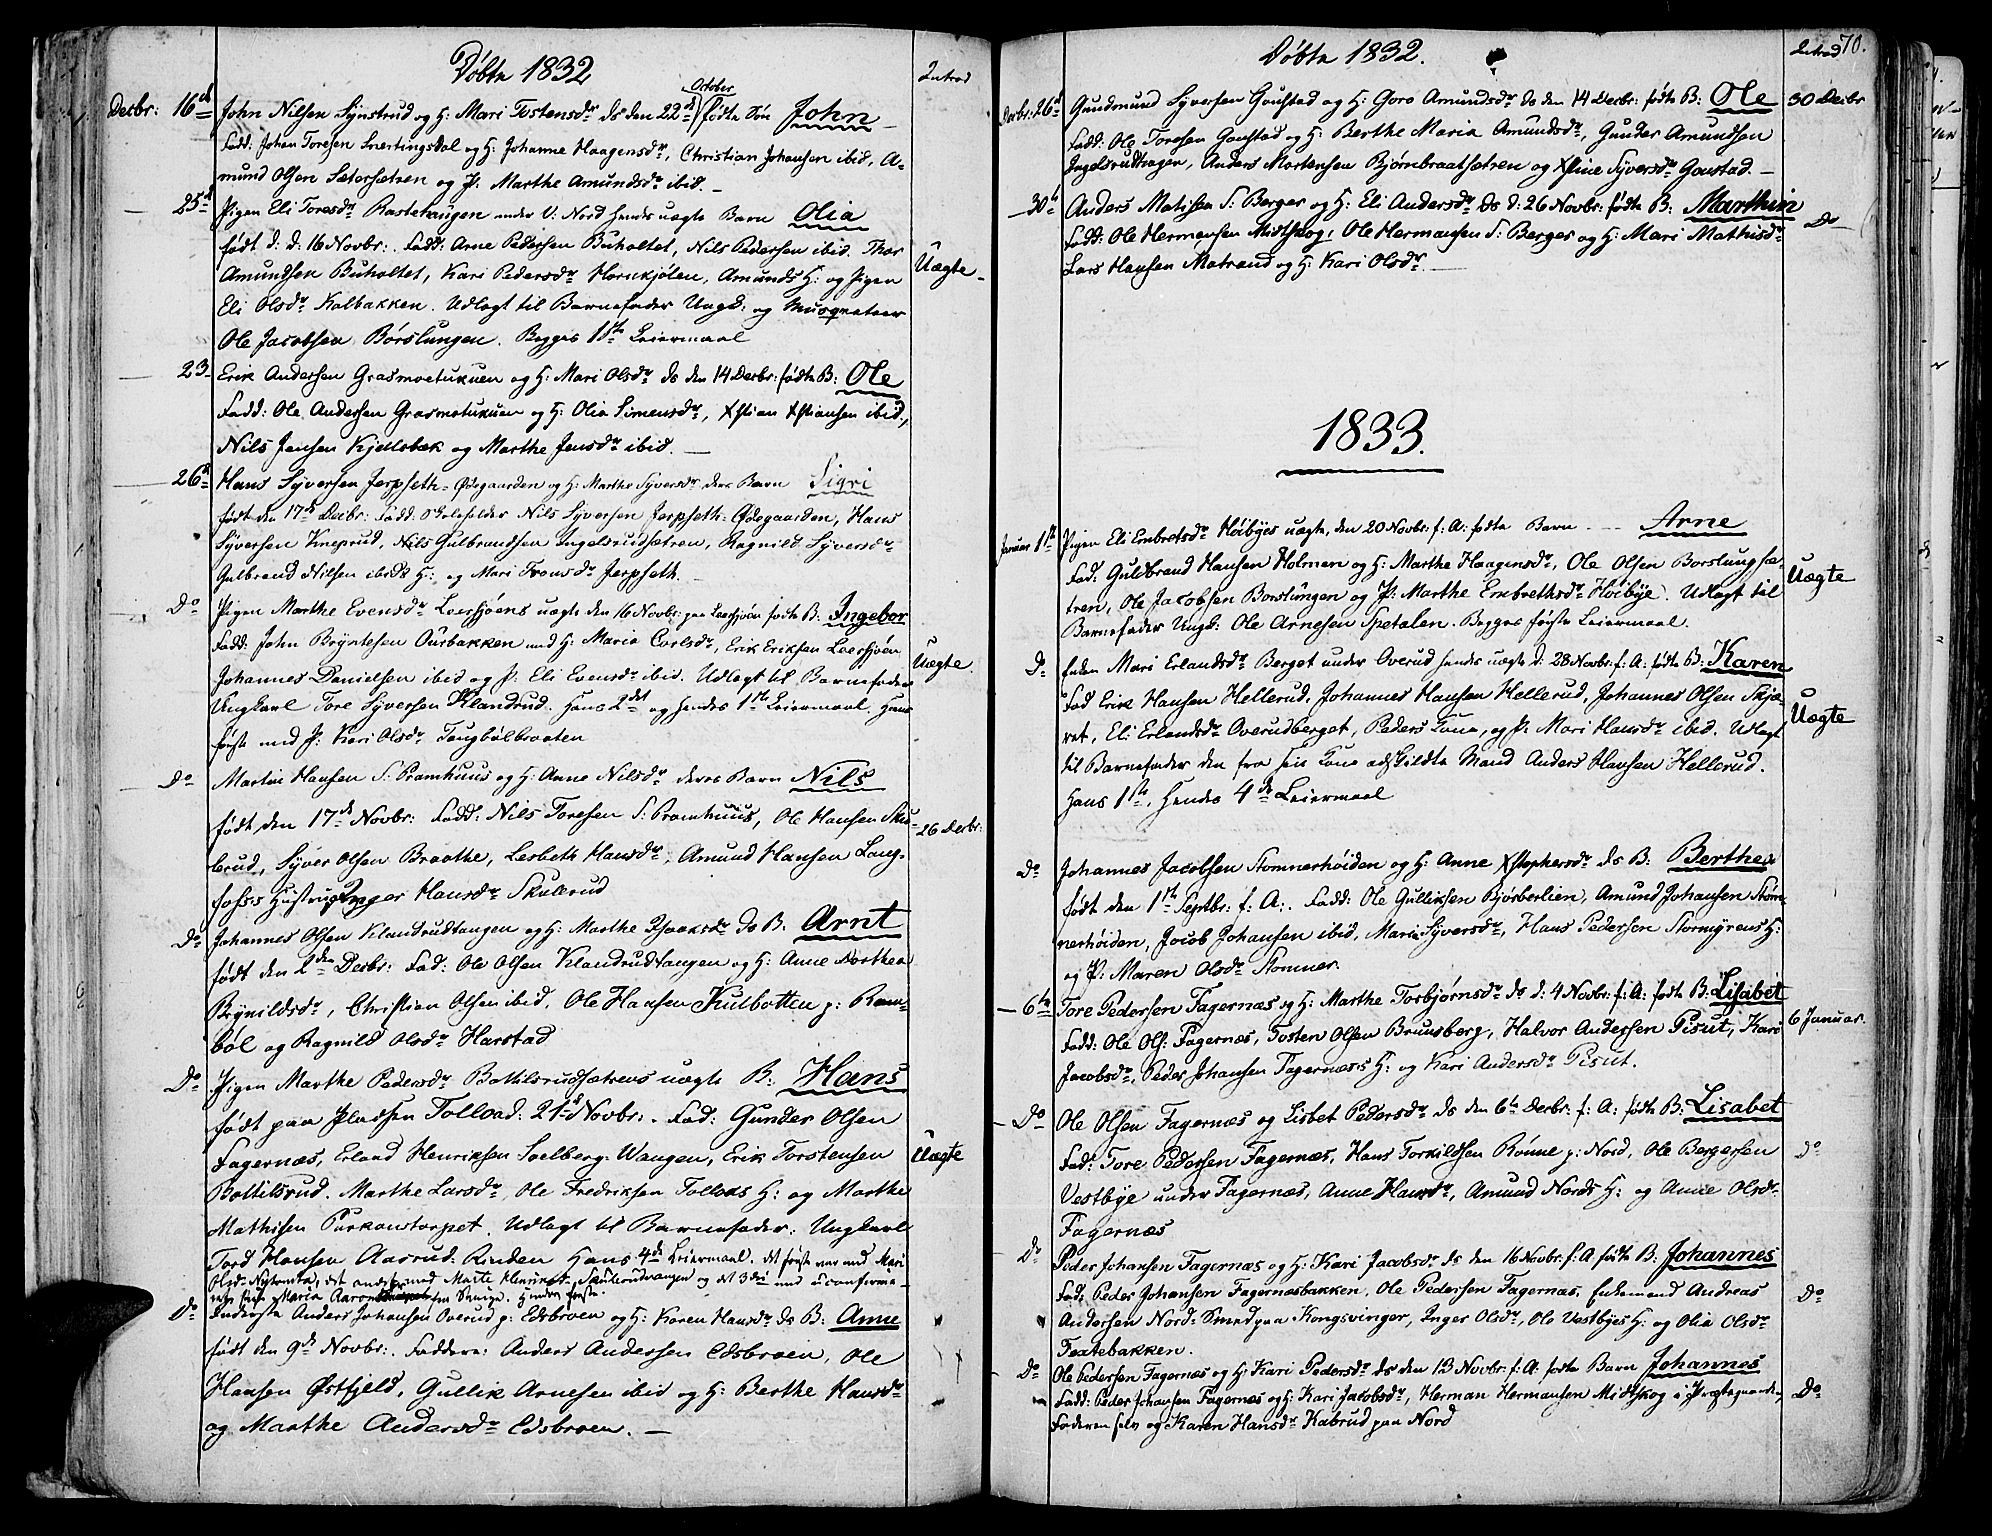 Døbte 1832
Introd
Decbr: 16de John Nilsen Synstrud og H: Mari Tostensdr Ds den 22de October fødte Søn John
Fadd: Johan Toresen Snertingsdal og H: Johanne Haagensdr, Christian Johansen ibid, A-
mund Olsen Sætersætren og P: Marthe Amundsdr ibid. –
– 25de Pigen Eli Toresdr Rastehaugen under V: Nord hendes uægte Barn Olia
født d: d: 16 Novbr:. Fadd: Arne Pedersen Buholtet, Nils Pedersen ibid. Thor
Amundsen Buholtet, Kari Pedersdr Hornkjølen, Amunds H: og Pigen
Uægte –
Eli Olsdr Kalbakken. Udlagt til Barnefader Ungk: og Musqueteer
Ole Jacobsen Børslungen. Begges 1ste Leiermaal
– 23– Erik Andersen Grasmoetukuen og H: Mari Olsdr Ds den 14 Decbr: fødte B: Ole
Fadd: Ole Andersen Grasmotukuen og H: Olia Simensdr, Xstian Xstiansen ibid,
Nils Jensen Kjellsbæk og Marthe Jensdr ibid. –
26de Hans Syversen Jerpseth-Ødegaarden og H: Marthe Syversdr deres Barn Sigri
født den 17de Decbr: Fadd: Skoleholder Nils Syversen Jerpseth-Ødegaarden, Hans
Syversen Kneprud, Nils Gulbrandsen Ingelsrudsætren, Ragnild Syversdr
Gulbrand Nilsen ibids H: og Mari Tronsdr Jerpseth
Do Pigen Marthe Evensdr Loersjøens uægte den 16 Novbr: paa Loersjøen fødte B: Ingebor
Fadd: John Bryntesen Ourbakken med H: Maria Carlsdr, Erik Eriksen Loersjøen
Uægte
Johannes Danielsen ibid og P: Eli Evensdr ibid. Udlagt til Barnefader
Ungkarl Tore Syversen Klandrud. Hans 2det og hendes 1ste Leiermaal. Hans
første med P: Kari Olsdr Taugbølbraaten
Do Martin Hansen S: Pramhuus og H: Anne Nilsdr deres Barn Nils
født den 17de Novbr: Fadd: Nils Toresen S: Pramhuus, Ole Hansen Sku-
26 Decbr:
lerud, Syver Olsen Braathe, Lisbeth Hansdr, Amund Hansen Lang-
fosss Hustru, Inger Hansdr Skulerud
Do Johannes Olsen Klandrudtangen og H: Marthe Isaaksdr Ds B: Arnt
født den 2den Decbr: Fad: Ole Olsen Klandrudtangen og H: Anne Dorthea
Brynildsdr, Christian Olsen ibid, Ole Hansen Kulbotten p: Ram-
bøl og Ragnild Olsdr Harstad
Do Pigen Marthe Pedersdr Bottilsrudsætrens uægte B: Hans
født paa Pladsen Tolload: 21de Novbr:. Fad: Gunder Olsen
Fagernæs, Erland Henriksen Soelberg-Wangen, Erik Torstensen
Uægte
Bottilsrud. Marthe Larsdr, Ole Fredriksen Tolloks H: og Marthe
Mathisen Purkenstorpet. Udlagt til Barnefader: Ungkarl
Tord Hansen Aasrud-Rinden Hans 4de Leiermaal. det første var med Mari
Olsd. det andet med Marte Skulerudvangen og det 3die med uconfirme-
rte Maria Aaron fra Sverige. Hendes første.
Do Inderste Anders Johansen Overud p: Edsbroen og H: Karen Hansdr Ds B: Anne
født den 9de Novbr:. Faddere: Anders Andersen Edsbroen, Ole
Hansen Østfjeld, Gullik Arnesen ibid og H: Berthe Hansdr
og Marthe Andersdr Edsbroen. –
Døbte 1832.
Introd 70.
Decbr: 26de Gundmund Syversen Goustad og H: Goro Amundsdr Ds den 14 Decbr: fødte B: Ole
30 Decbr
Fadd: Ole Toresen Goustad og H: Berthe Maria Amundsdr, Gunder Amundsen
Ingelsrudhagen, Anders Mortensen Bjørnbraatsætren og Xstine Syversdr Goustad. –
– 30te Anders Matisen S: Berger og H: Eli Andersdr Ds d: 26 Novbr: fødte B: Marthin
Do
Fadd: Ole Hermansen Midtskog, Ole Hermansen S: Berges og H: Mari Mathisdr
Lars Hansen Matrand og H: Kari Olsdr –
1833.
Januar 1ste Pigen Eli Embretsdr Høibyes uægte, den 20 Novbr: f: A: fødte Barn – – Arne
Fad: Guldbrand Hansen Holmen og H: Marthe Haagensdr, Ole Olsen Borslungsæ-
Uægte
tren, Ole Jacobsen Borslungen og P: Marthe Embrethsdr Høibye. Udlagt til
Barnefader Ungk: Ole Arnesen Spetalen. Begges første Leiermaal.
Do Enken Mari Erlandsdr Berget under Overud hendes uægte d: 28 Novbr: f: A: fødte B: Karen
Fad Erik Hansen Hellerud, Johannes Hansen Hellerud, Johannes Olsen Skjæ-
Uægte
ret, Eli Erlandsdr Overudberget, Peders Kone, og P: Mari Hansdr ibid. Udlagt
til Barnefader den fra sin Kone adskildte Mand Anders Hansen Hellerud.
Hans 1ste, hendes 4de Leiermaal
Do Johannes Jacobsen Stomnerhøiden og H: Anne Xstophersdr Ds B: Berthe
født den 1ste Septbr: f: A:. Fadd: Ole Gulliksen Bjørberlien, Amund Johansen Stom-
nerhøiden, Jacob Johansen ibid, Maria Syversdr, Hans Pedersen Stormyrens H:
og P: Maren Olsdr Stomner.
– 6te Tore Pedersen Fagernæs og H: Marthe Torbjørnsdr Ds d: 4 Novbr: f: A: fødte B: Lisabet
6 Januar.
Fadd: Ole Ols: Fagernæs, Tosten Olsen Brunsberg, Halvor Andersen Pisut, Kari
Jacobsdr, Peder Johansen Fagernæss H: og Kari Andersdr Pisut.
– Do Ole Olsen Fagernæs og Lisbet Pedersdr Ds den 6te Decbr: f: A: fødte B: Lisabet
Fad: Tore Pedersen Fagernæs, Hans Torkildsen Rønne p: Nord, Ole Bergersen
Do
Vestbye under Fagernæs, Anne Hansdr, Amund Nords H: og Anne Olsdr
Fagernæs
– Do Peder Johansen Fagernæs og H: Kari Jacobsdr Ds den 16 Novbr: f: A fødte B: Johannes
Fad: Peder Johansen Fagernæsbakken, Ole Pedersen Fagernæs, Enkemand Andreas
Do
Andersen Nord- Smed paa Kongsvinger, Inger Olsdr, Ole Vestbyes H: og Olia Olsdr
Textebakken.
– Do Ole Pedersen Fagernæs og H: Kari Pedersdr Ds den 13 Novbr: f: A: fødte Barn Johannes
Fadd: Peder Johansen Fagernæs og H: Kari Jacobsdr, Herman Hermansen Midtskog i Præstegaarden,
Do
Faderen selv og Karen Hansdr Kabrud paa Nord